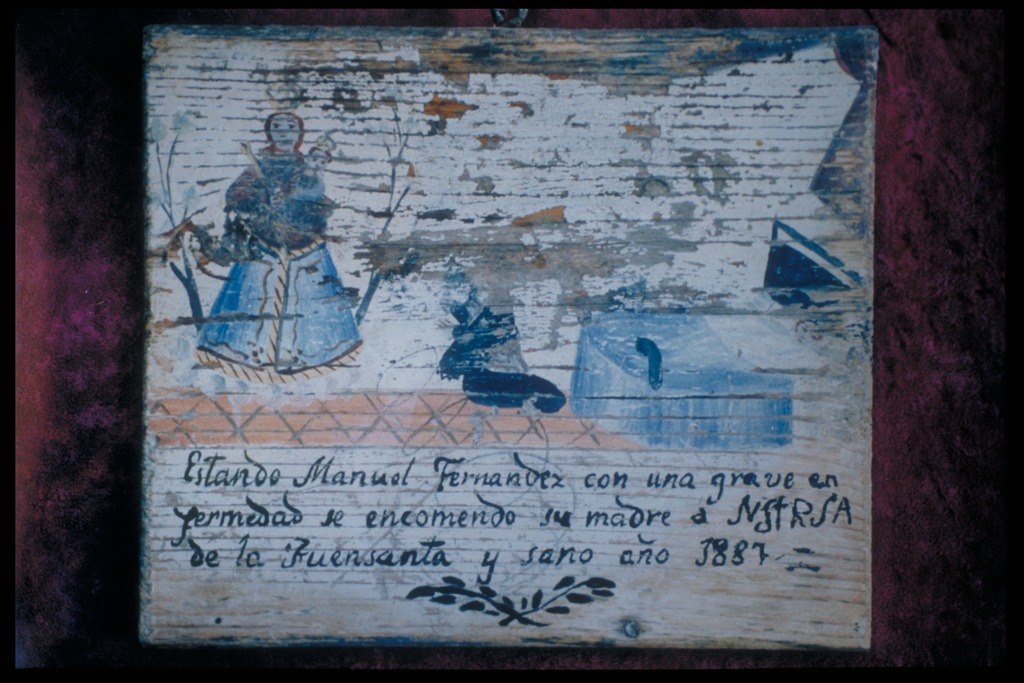 Estando Manuel Fernandez con una grave en
fermedad se encomendo su madre a NSTRSA
de la Fuensanta y sano año 1887